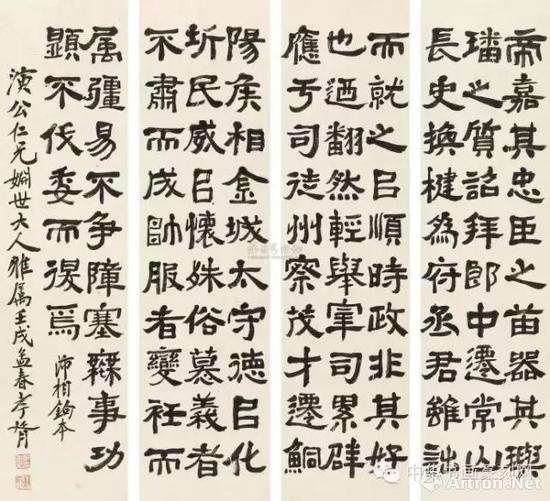 帝嘉其忠臣之苗器其璵
璠之質詔拜郎中遷常山
長史換楗為府丞君雖詘
而就之㠯順時政非其好
也迺翻然輕舉宰司累辟
應于司徒州察茂才遷鮦
陽矦相金城太守德㠯化
圻民威㠯懷殊俗慕義者
不肅而成帥服者變衽而
属彊易不争障塞無事功
顯不伐委而復焉 沛相鉤本
演公仁兄姻世大人雅属壬戌孟春孝胥
Artron.Net